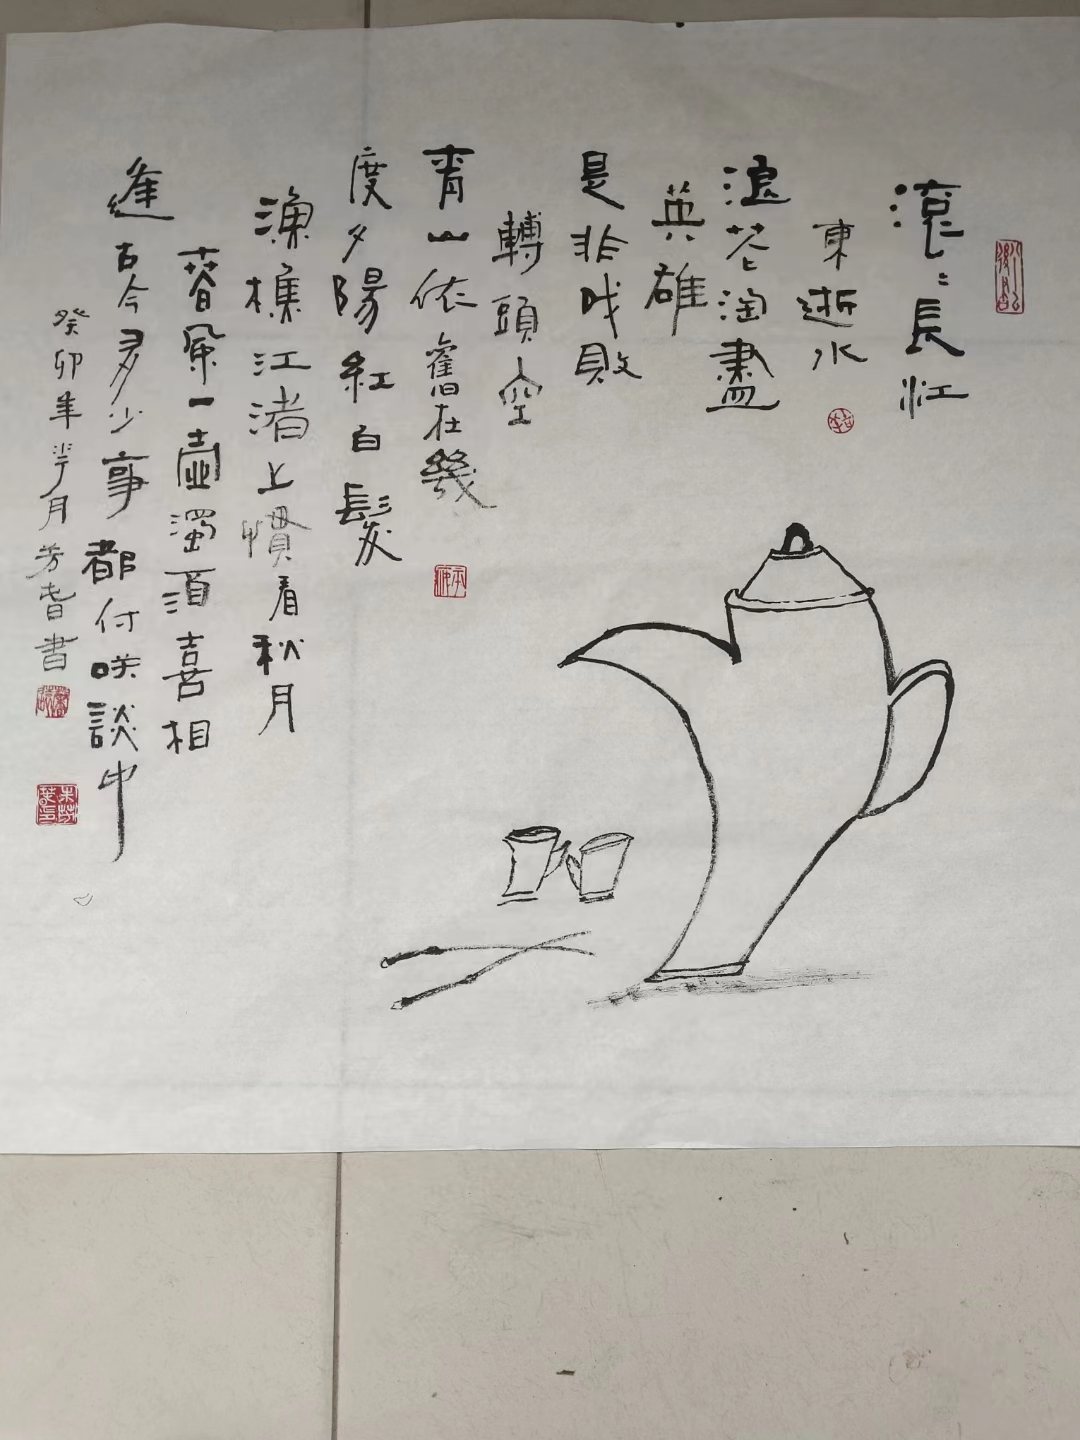 滾〻長江
東逝水
浪花淘盡
英雄
是非成敗
轉頭空
青山依舊在幾
度夕陽紅白髮
漁樵江渚上慣看秋月
春風一壺濁酒喜相
逢古今多少事都付咲談中
癸卯年 月芳 書